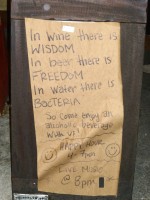 In wine there is
WISDOM
In beer there is
FREEDOM
In water there is
BACTERIA
So come enjoy an
alcoholic beverage
with us!
HAPPY HOUR
Live Music
@ 8pm